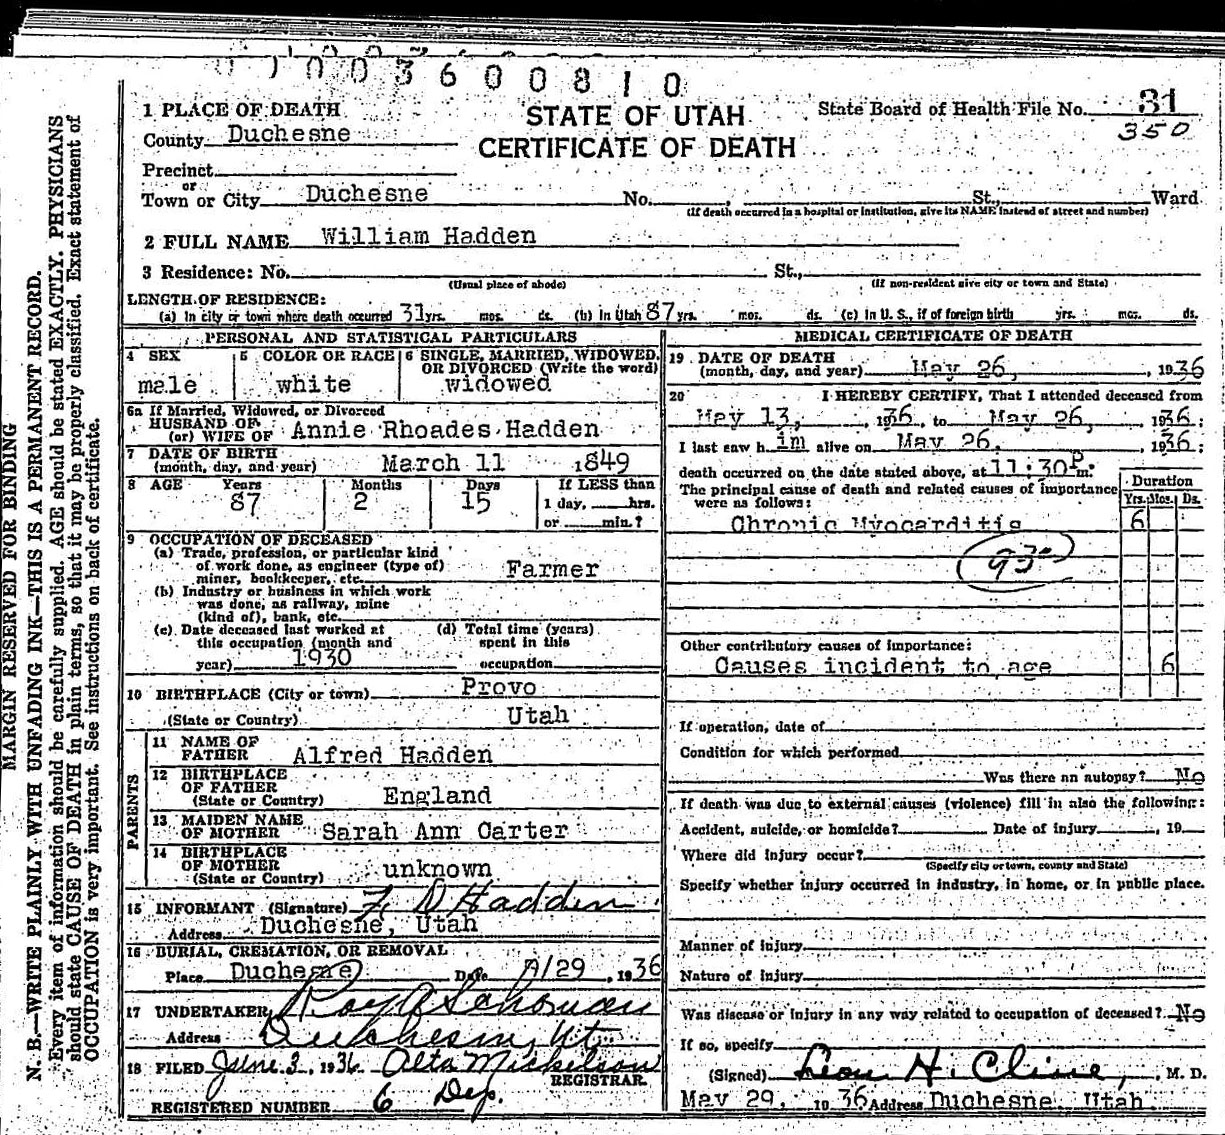 3 6 0 0 8 1 0
1 PLACE OF DEATH
STATE OF UTAH
State Board of Health File No. 81
County Duchesne
350
CERTIFICATE OF DEATH
Precinct
or
Town or City Duchesne No. , St., Ward
(If death occurred in a hospital or institution, give its NAME instead of street and number)
2 FULL NAME William Hadden
3 Residence: No. St.,
(Usual place of abode) (If non-resident give city or town and State)
LENGTH OF RESIDENCE:
(a) In city or town where death occurred 31 yrs. mos. ds. (b) in Utah 87 yrs. mos. ds. (c) in U. S., if of foreign birth yrs. mos. ds.
PERSONAL AND STATISTICAL PARTICULARS
4 SEX male
5 COLOR OR RACE white
6 SINGLE, MARRIED, WIDOWED, OR DIVORCED (Write the word) widowed
6a If Married, Widowed, or Divorced
HUSBAND OF
(or) WIFE OF Annie Rhoades Hadden
7 DATE OF BIRTH
(month, day, and year) March 11 1849
8 AGE Years Months Days If LESS than
87 2 15 1 day, hrs.
or min.?
9 OCCUPATION OF DECEASED
(a) Trade, profession, or particular kind
of work done, as engineer (type of)
miner, bookkeeper, etc. Farmer
(b) Industry or business in which work
was done, as railway, mine
(kind of), bank, etc.
(c) Date deceased last worked at
this occupation (month and
year) 1930
(d) Total time (years)
spent in this
occupation
10 BIRTHPLACE (City or town) Provo
(State or Country) Utah
PARENTS
11 NAME OF
FATHER Alfred Hadden
12 BIRTHPLACE
OF FATHER
(State or Country) England
13 MAIDEN NAME
OF MOTHER Sarah Ann Carter
14 BIRTHPLACE
OF MOTHER
(State or Country) unknown
15 INFORMANT (Signature) F. D Hadden
Address Duchesne, Utah
16 BURIAL, CREMATION, OR REMOVAL
Place Duchesne Date /29, 1936
17 UNDERTAKER Roy A
Address Duchesne, Ut.
18 FILED June 3, 1936 Alta Mickelson
REGISTRAR
REGISTERED NUMBER 6 Dep.
MEDICAL CERTIFICATE OF DEATH
19 DATE OF DEATH
(month, day, and year) May 26, , 1936
20 I HEREBY CERTIFY, That I attended deceased from
May 13, , 1936, to May 26, , 1936;
I last saw h im alive on May 26, , 1936;
death occurred on the date stated above, at 11:30 P m.
The principal cause of death and related causes of importance
were as follows:
Duration
Yrs. Mos. Ds.
Chronic Myocarditis 6
Other contributory causes of importance:
Causes incident to age 6
If operation, date of
Condition for which performed
Was there an autopsy? No
If death was due to external causes (violence) fill in also the following:
Accident, suicide, or homicide? Date of injury , 19
Where did injury occur?
(Specify city or town, county and State)
Specify whether injury occurred in industry, in home, or in public place.
Manner of injury
Nature of injury
Was disease or injury in any way related to occupation of deceased? No
If so, specify
(Signed) Leon H. Cline, , M. D.
May 29, 1936 Address Duchesne, Utah
MARGIN RESERVED FOR BINDING
N. B.—WRITE PLAINLY WITH UNFADING INK—THIS IS A PERMANENT RECORD.
Every item of information should be carefully supplied. AGE should be stated EXACTLY. PHYSICIANS
should state CAUSE OF DEATH in plain terms, so that it may be properly classified. Exact statement of
OCCUPATION is very important. See instructions on back of certificate.